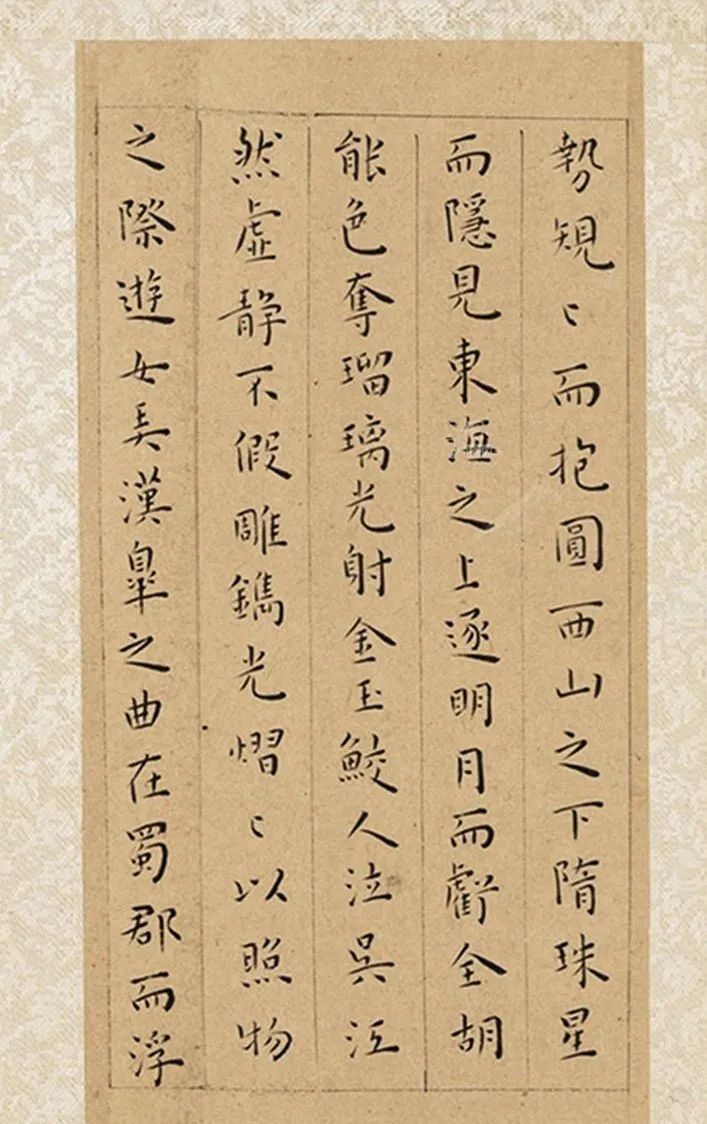 勢規〻而抱圓西山之下隋珠星
而隱見東海之上逐明月而虧全胡
能色奪瑠璃光射金玉鮫人泣吳江
然虛靜不假雕鐫光熠〻以照物
之際遊女弄漢皐之曲在蜀郡而浮